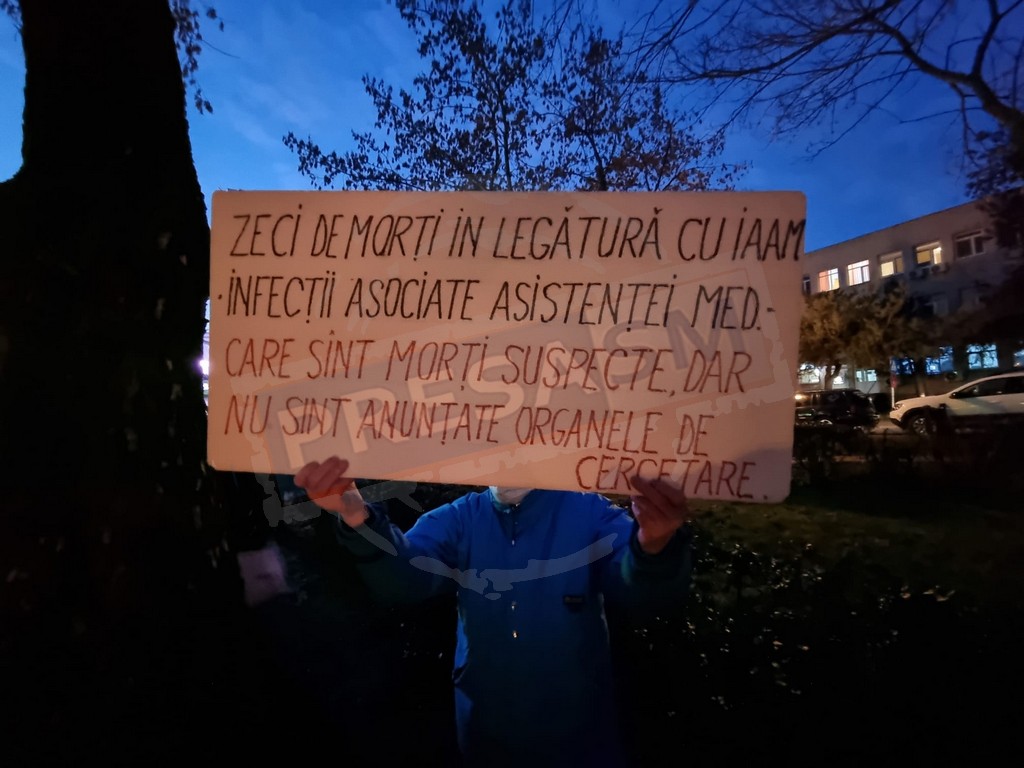 ZECI DE MORȚI IN LEGĂTURĂ CU IAAM
-INFECȚII ASOCIATE ASISTENȚEI MED.-
CARE SÎNT MORȚI SUSPECTE, DAR
NU SINT ANUNȚATE ORGANELE DE
CERCETARE.
PRESASM